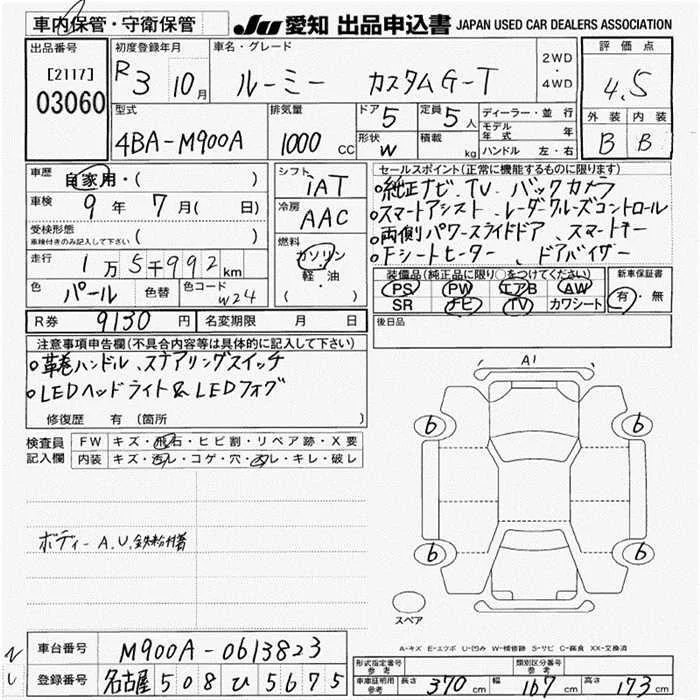 車内保管・守衛保管
JU 愛知 出品申込書 JAPAN USED CAR DEALERS ASSOCIATION
出品番号 [2117] 03060
初度登録年月 R3 10月
車名・グレード ルーミー カスタムG-T
2WD・4WD
評価点 4.5
外装 内装
B B
型式 4BA-M900A
排気量 1000 CC
ドア 5 定員 5人
形状 W 積載 kg
ディーラー・並行
モデル年式 年
ハンドル 左・右
車歴 自家用・( )
車検 9年 7月( 日)
受検形態 車検付きのみ記入して下さい ( )
走行 1万5千992km
色 パール 色替 色コード W24
シフト iAT
冷房 AAC
燃料 ガソリン
軽・油
( )
セールスポイント(正常に機能するものに限ります)
○純正ナビ、TV、バックカメラ
○スマートアシスト、レーダークルーズコントロール
○両側パワースライドドア、スマートキー
○Fシートヒーター、ドアバイザー
装備品(純正品に限り○をつけてください)
PS PW エアB AW
SR ナビ TV カワシート
新車保証書
有・無
R券 9130円 名変期限 月 日
後日品
注意事項申告欄(不具合内容等は具体的に記入して下さい)
○革巻ハンドル、ステアリングスイッチ
○LEDヘッドライト&LEDフォグ
修復歴 有 (箇所 )
検査員記入欄
FW キズ・飛石・ヒビ割・リペア跡・X要
内装 キズ・汚レ・コゲ・穴・スレ・キレ・破レ
ボディーA.U.鉄粉付着
A1
6 6
6 6
スペア
A-キズ E-エクボ U-凹み W-補修跡 S-サビ C-腐食 XX-交換済
車台番号 M900A-0613823
登録番号 名古屋 508 ひ 5675
形式指定番号 参考
類別区分番号 参考
車庫証明用 参考 長さ 370cm 幅 167cm 高さ 173cm